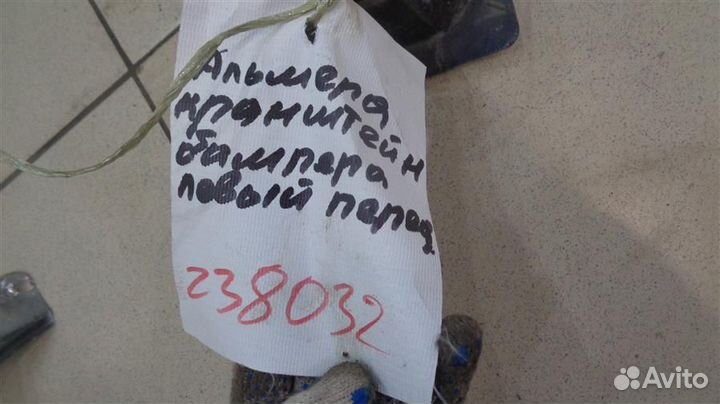 Альмера
кранштейн
бампера
левый перед.
238032
Avito